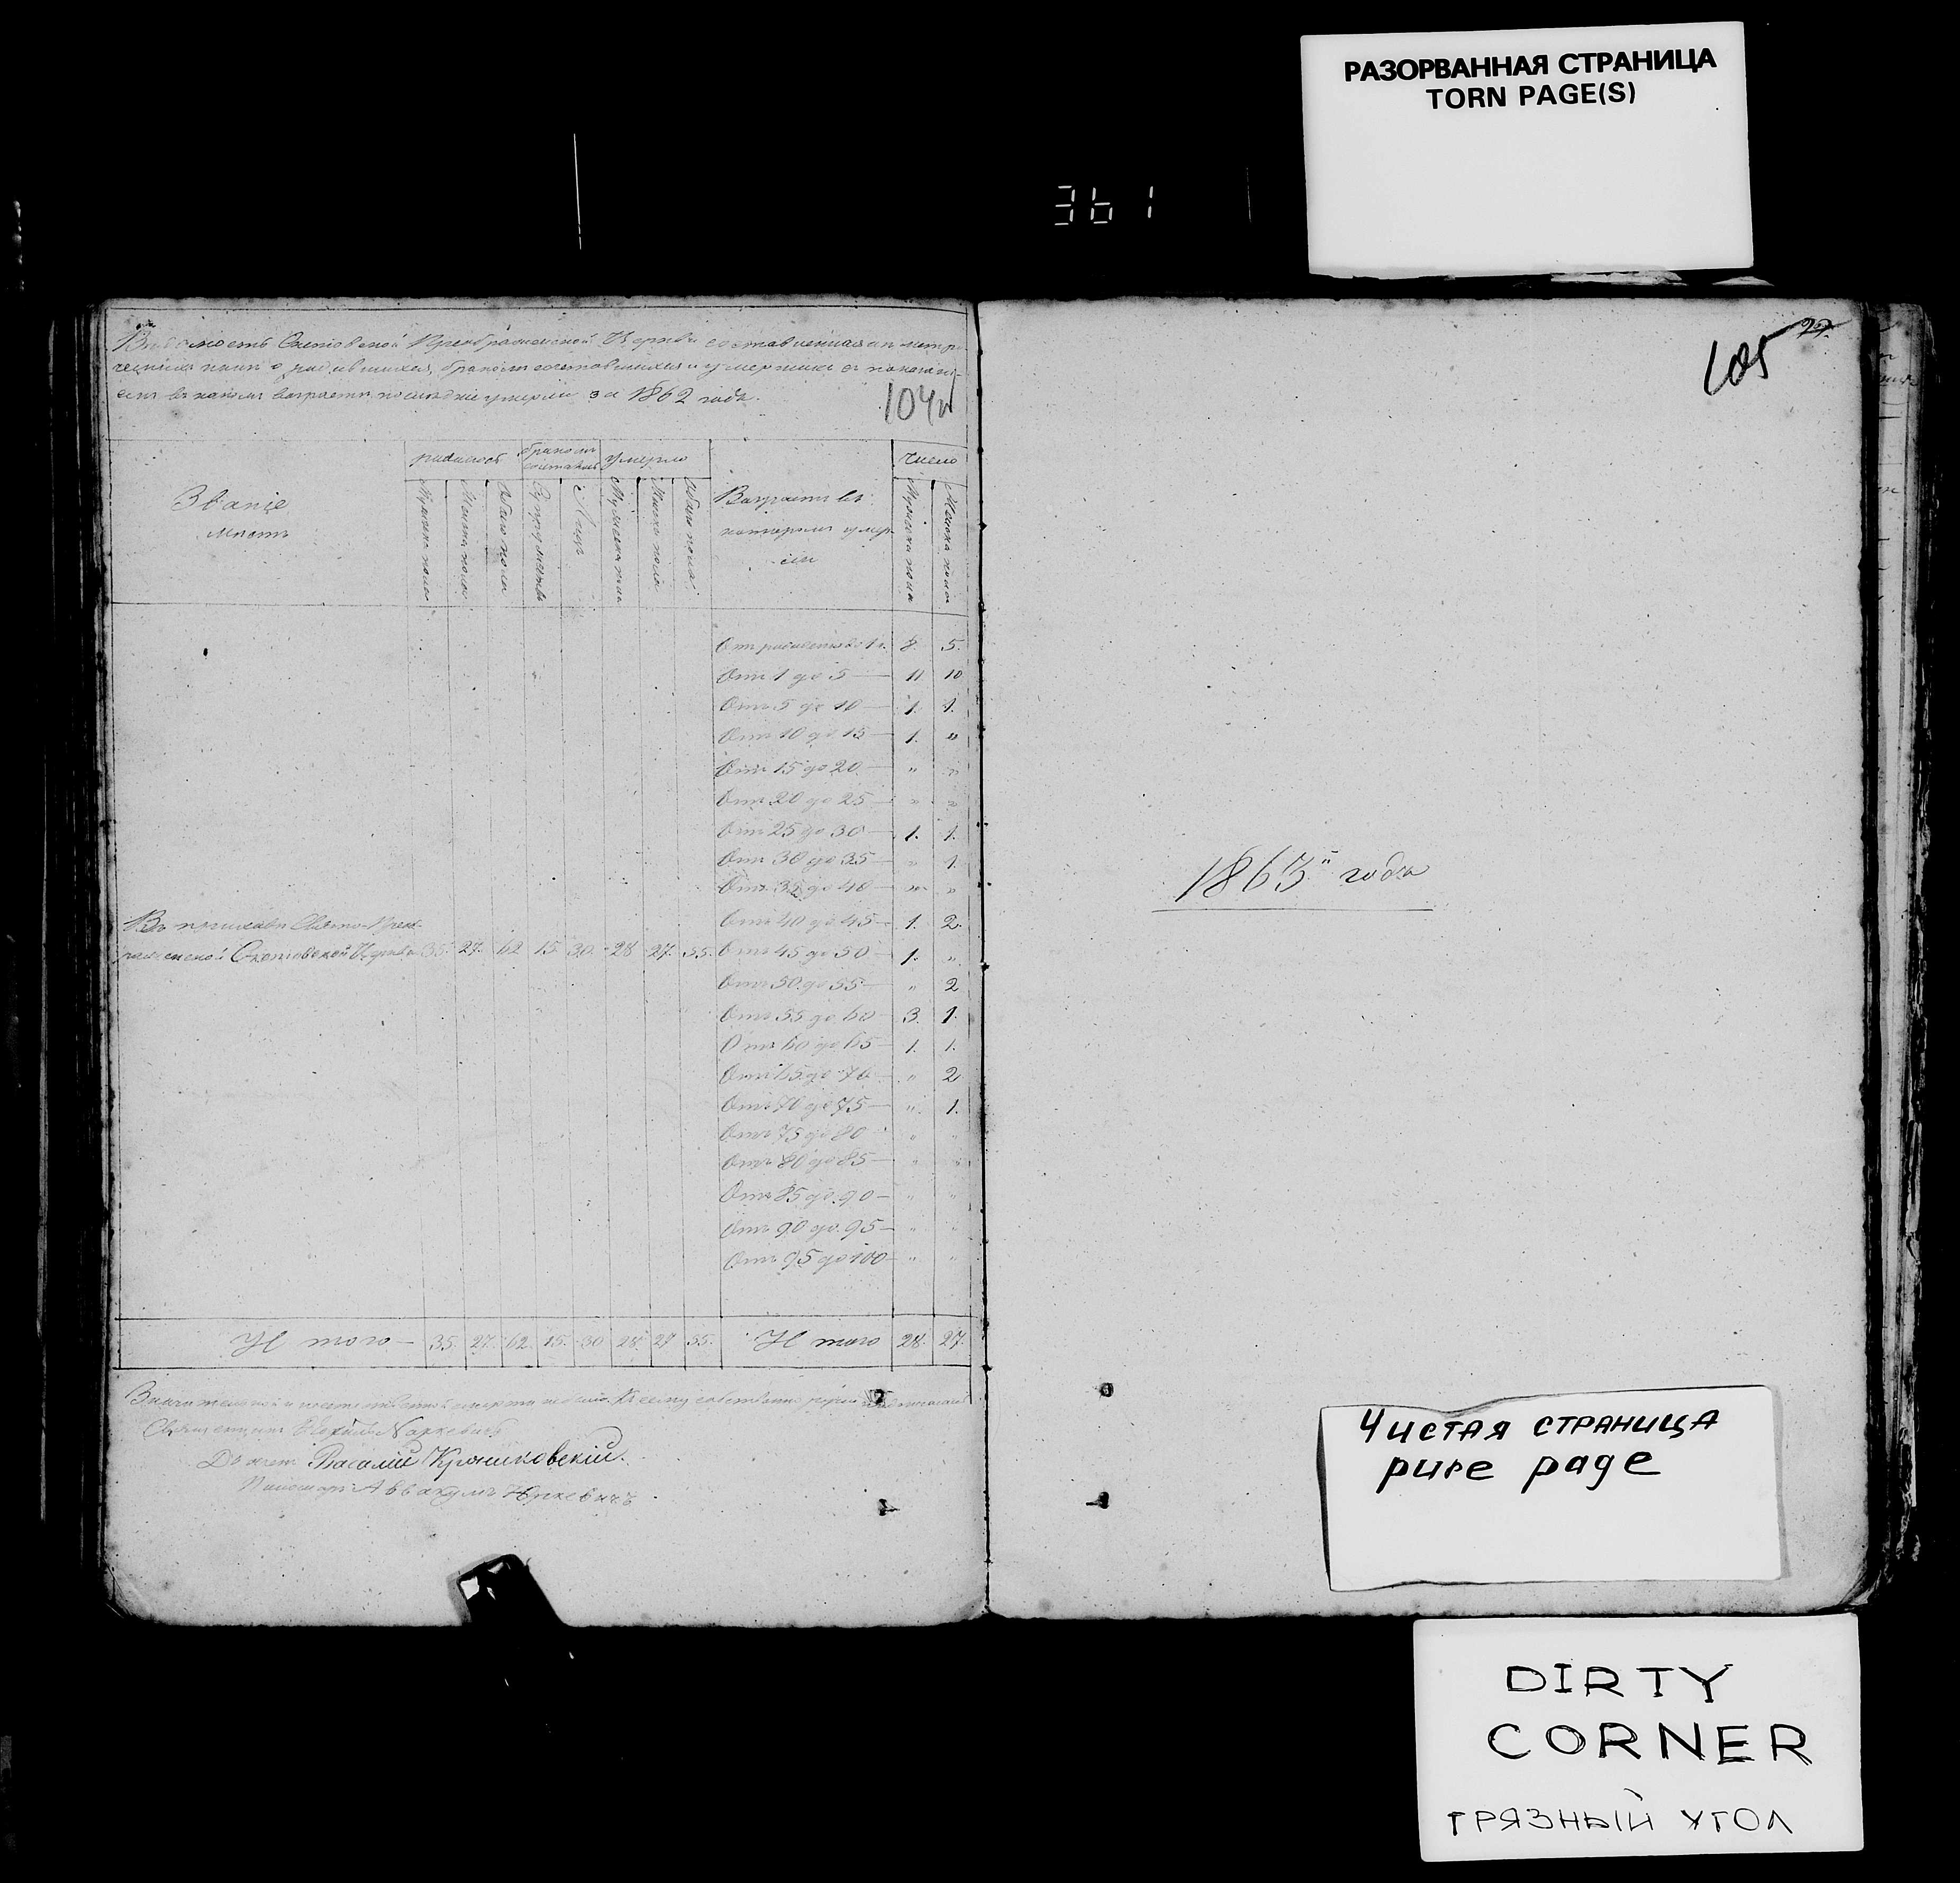 РАЗОРВАННАЯ СТРАНИЦА
TORN PAGE(S)
361
Преображенской Церкви составленная из метри-
умершихъ съ показані-
емъ въ какомъ возрасте последніе умерли за 1862 годъ.
104
родилось
бракомъ
умерло
число
Званіе
местъ
Мужеска пола
Женска пола
Обоего пола
Супружествъ
Лицъ
Мужеска пола
Женска пола
Обоего пола
Возрастъ въ
которомъ умер-
ли
Мужеска пола
Женска пола
Отъ рожденія до 1 г. 8. 5.
Отъ 1 до 5 — 11 10
Отъ 5 до 10 — 1. 1.
Отъ 10 до 15 — 1. "
Отъ 15 до 20 — " "
Отъ 20 до 25 — " "
Отъ 25 до 30 — 1. 1.
Отъ 30 до 35 — " 1.
Отъ 35 до 40 — " "
Отъ 40 до 45 — 1. 2.
Отъ 45 до 50 — 1. "
Отъ 50 до 55 — " 2
Отъ 55 до 60 — 3. 1.
Отъ 60 до 65 — 1. 1.
Отъ 65 до 70 — " 2
Отъ 70 до 75 — " 1.
Отъ 75 до 80 — " "
Отъ 80 до 85 — " "
Отъ 85 до 90 — " "
Отъ 90 до 95 — " "
Отъ 95 до 100 — " "
Въ приходе Свято-Преоб-
раженской Церкви 35. 27. 62 15 30. 28 27. 55.
И того — 35. 27. 62. 15. 30 28. 27 55. И того 28. 27.
Священникъ
Василій
Пономарь Аввакумъ Юркевичъ
105
27.
1863 года
Чистая страница
pure page
DIRTY
CORNER
ГРЯЗНЫЙ УГОЛ